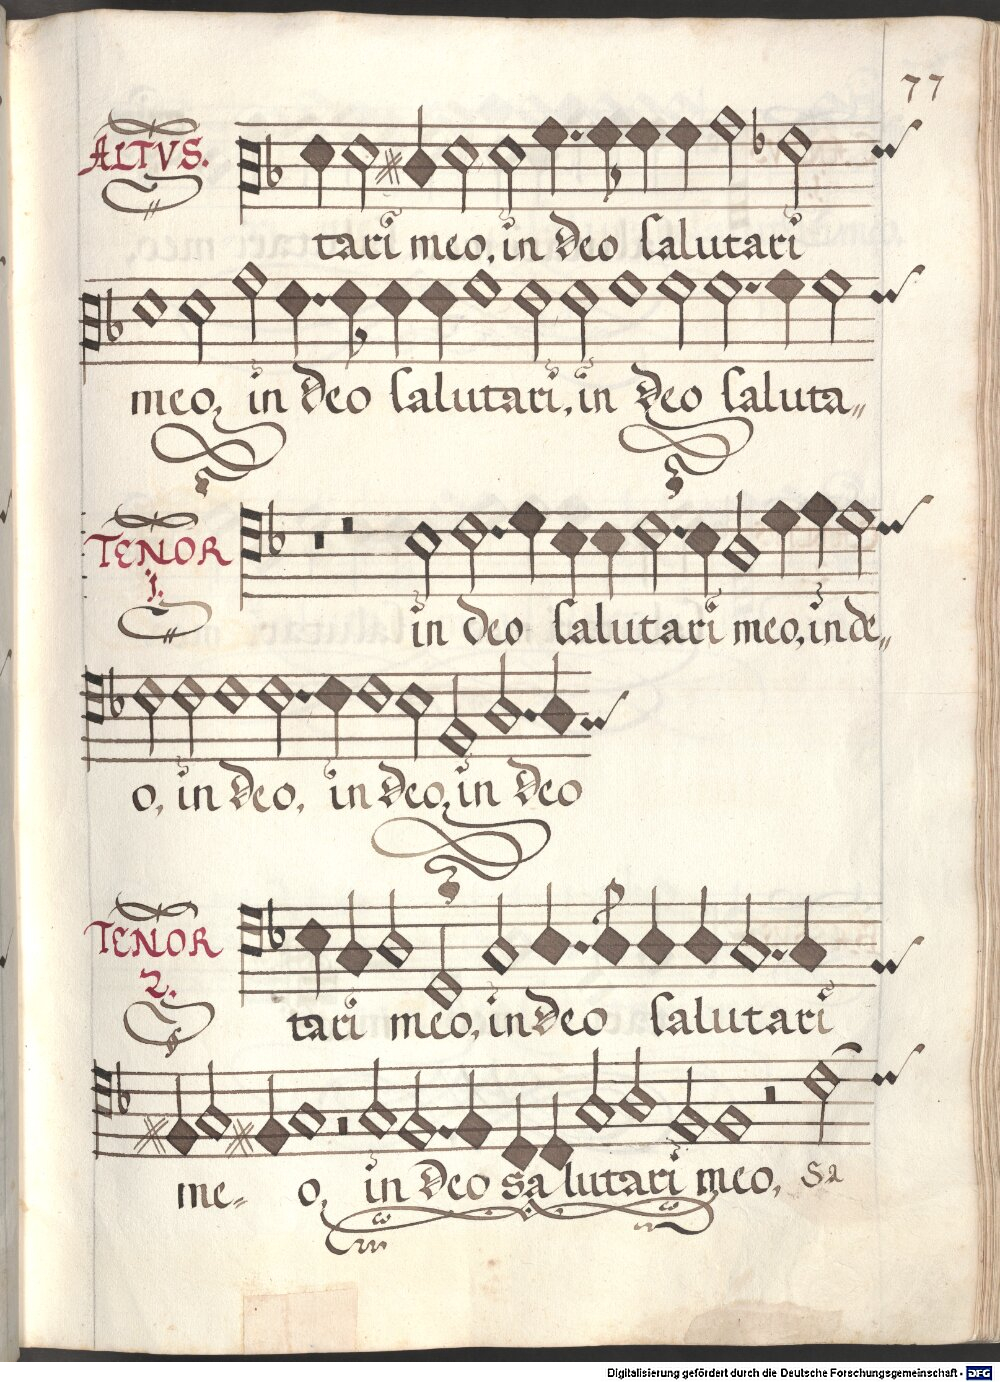 77
ALTVS.
tari meo, in Deo salutari
meo, in Deo salutari, in Deo saluta„
TENOR
1.
in Deo salutari meo, in de„
o, in Deo, in Deo, in Deo
TENOR
2.
tari meo, in Deo salutari
me- o, in Deo salutari meo, Sa
Digitalisierung gefördert durch die Deutsche Forschungsgemeinschaft - DFG